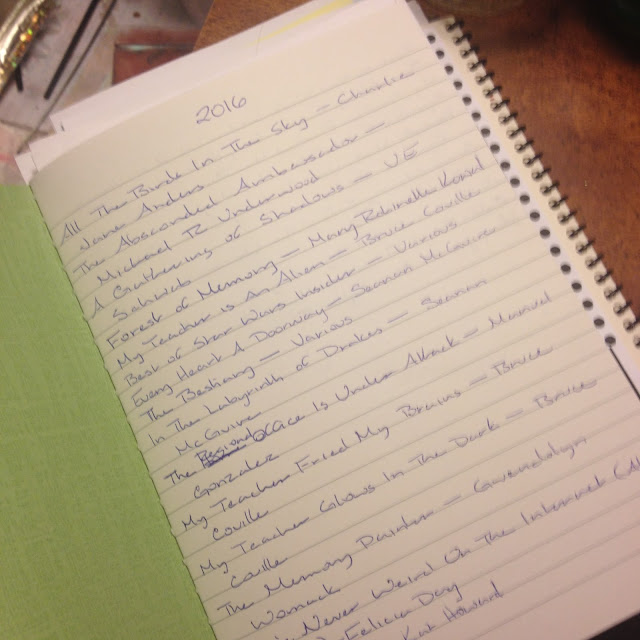 2016
All The Birds In The Sky – Charlie
Jane Anders
The Absconded Ambassador –
Michael R Underwood
A Gathering of Shadows – VE
Schwab
Forest of Memory – Mary Robinette Kowal
My Teacher is An Alien – Bruce Coville
Best of Star Wars Insider – Various
Every Heart A Doorway – Seanan McGuire
The Bestiary – Various
In The Labyrinth of Drakes – Seanan
McGuire
The Office Is Under Attack – Manuel
Gonzales
My Teacher Fried My Brains – Bruce
Coville
My Teacher Glows In The Dark – Bruce
Coville
The Memory Painter – Gwendolyn
Womack
Never Weird On The Internet
Felicia Day
Kat Howard